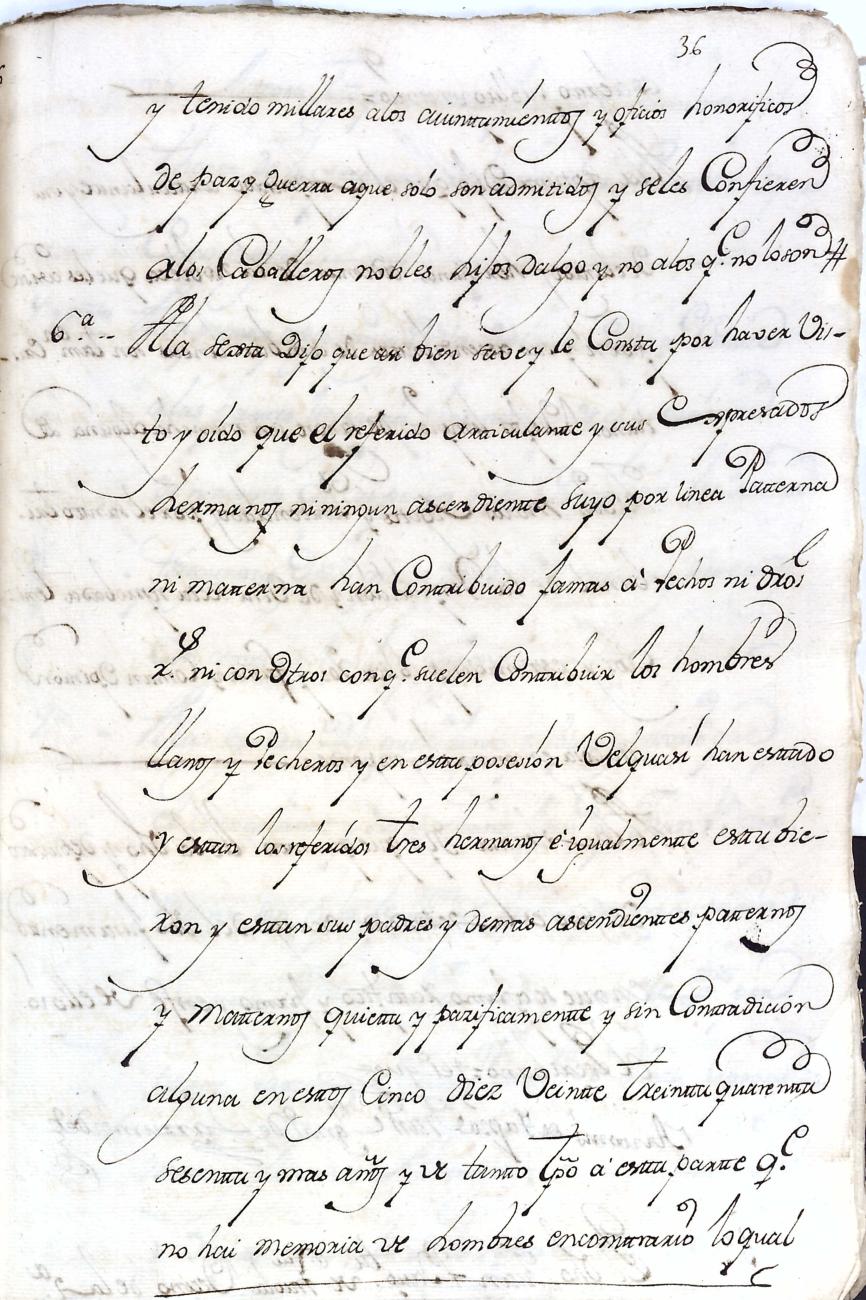 36
y tenido millares alos aiunttamienttos y oficios honorificos
de paz y Guerra aque solo son admitidos y seles Confieren
alos Caballeros nobles hijos dalgo y no alos q.e no lo son #
6.a -- A la sexta Dijo que asi bien save y le Consta por haver Vis-
to y oído que el referido Articulantte y sus Expresados
hermanos ni ningun ascendientte suyo por linea Patterna
ni matterna han Contribuido Jamas à Pechos ni dros
r.s ni con Otros con q.e suelen Contribuir los hombres
llanos y Pecheros y en estta posesión Velquasí han esttado
y esttan los referidos tres hermanos è igualmentte esttubie-
ron y esttan sus padres y demas ascendienttes patternos
y Matternos quietta y pazificamentte y sin Conttradición
alguna en esttos Cinco diez Veintte treintta quarentta
sesentta y mas años y de tantto tpo à estta partte q.e
no hai memoria de hombres en conttrario lo qual